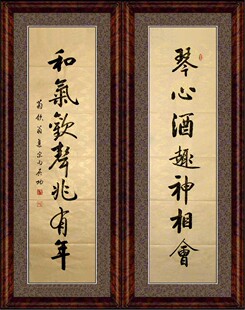 琴心酒趣神相會
和氣歡聲兆有年